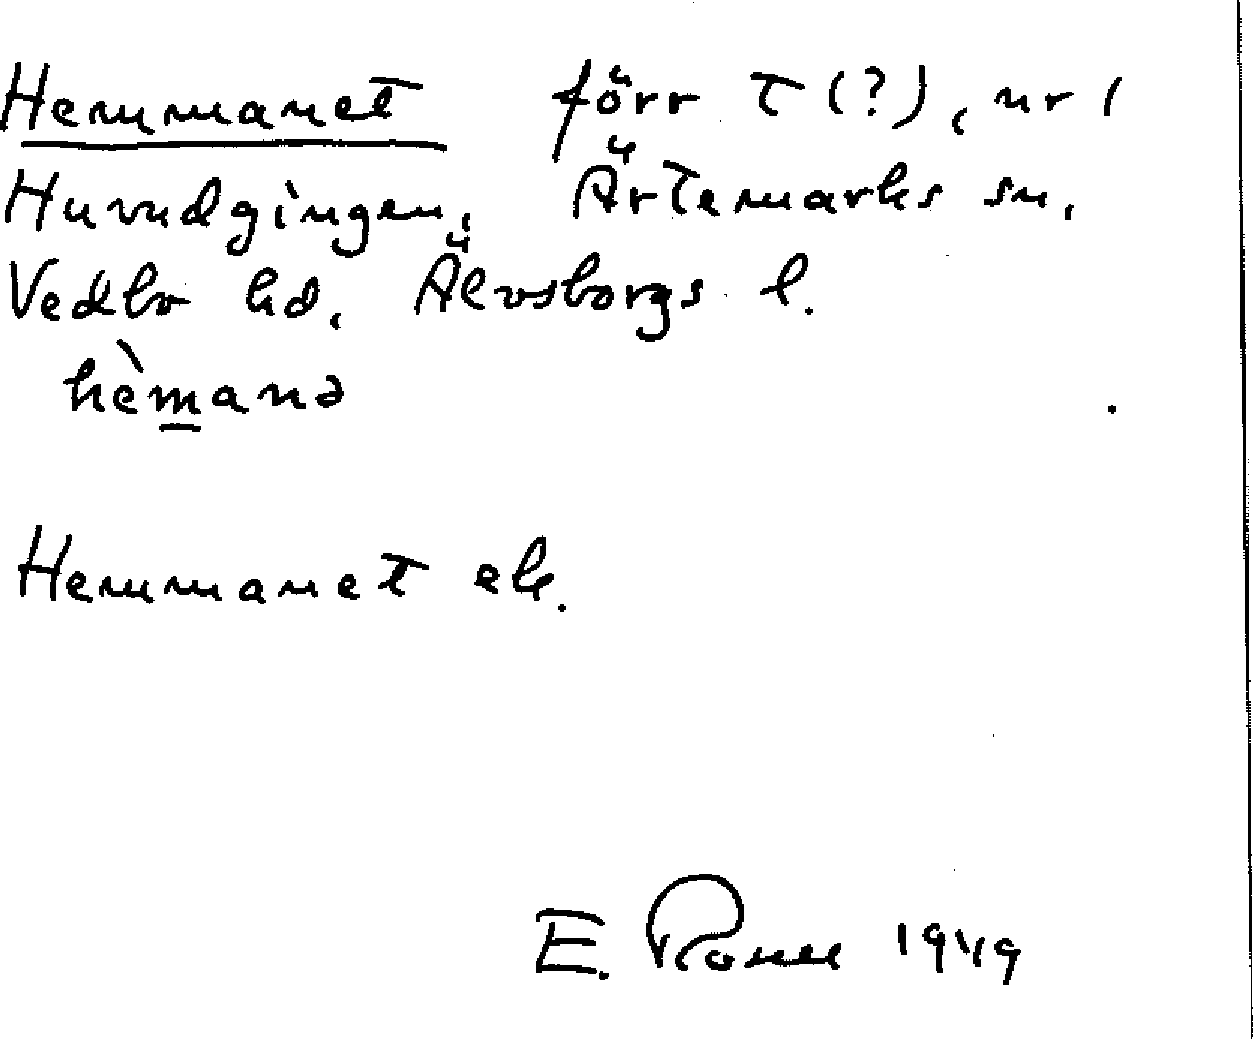 Hemmanet förr T (?), nr 1
Huvudgingen, Ärtemarks sn,
Vedbo hd, Älvsborgs l.
hèmanə
Hemmanet ek.
E. 1949